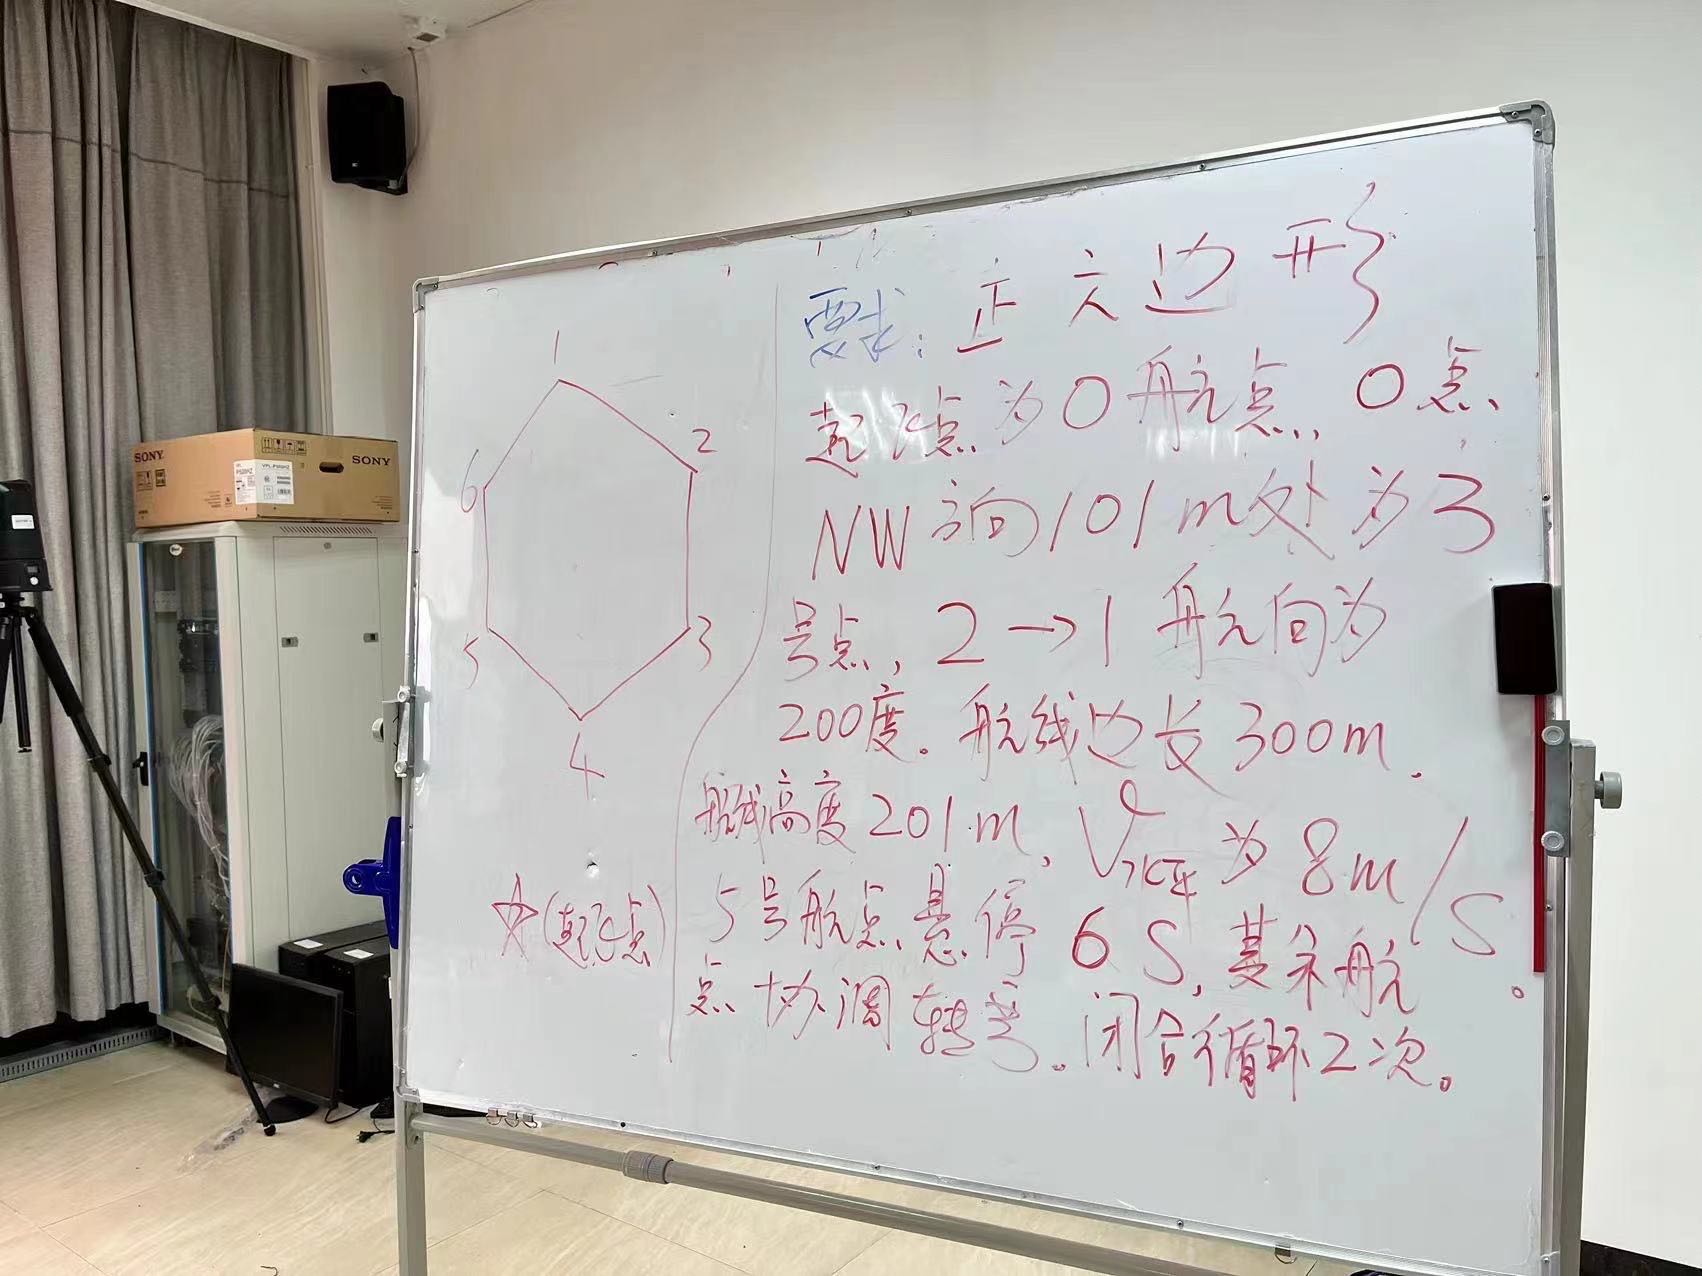 SONY
SONY
1
2
6
5
3
4
☆(起飞点)
要求: 正六边形
起飞点为0航点, 0点
NW方向101m处为3
号点, 2→1航向为
200度。航线边长300m.
航线高度201m, V水平为8m/s。
5号航点悬停6S, 其余航
点协调转弯. 闭合循环2次。